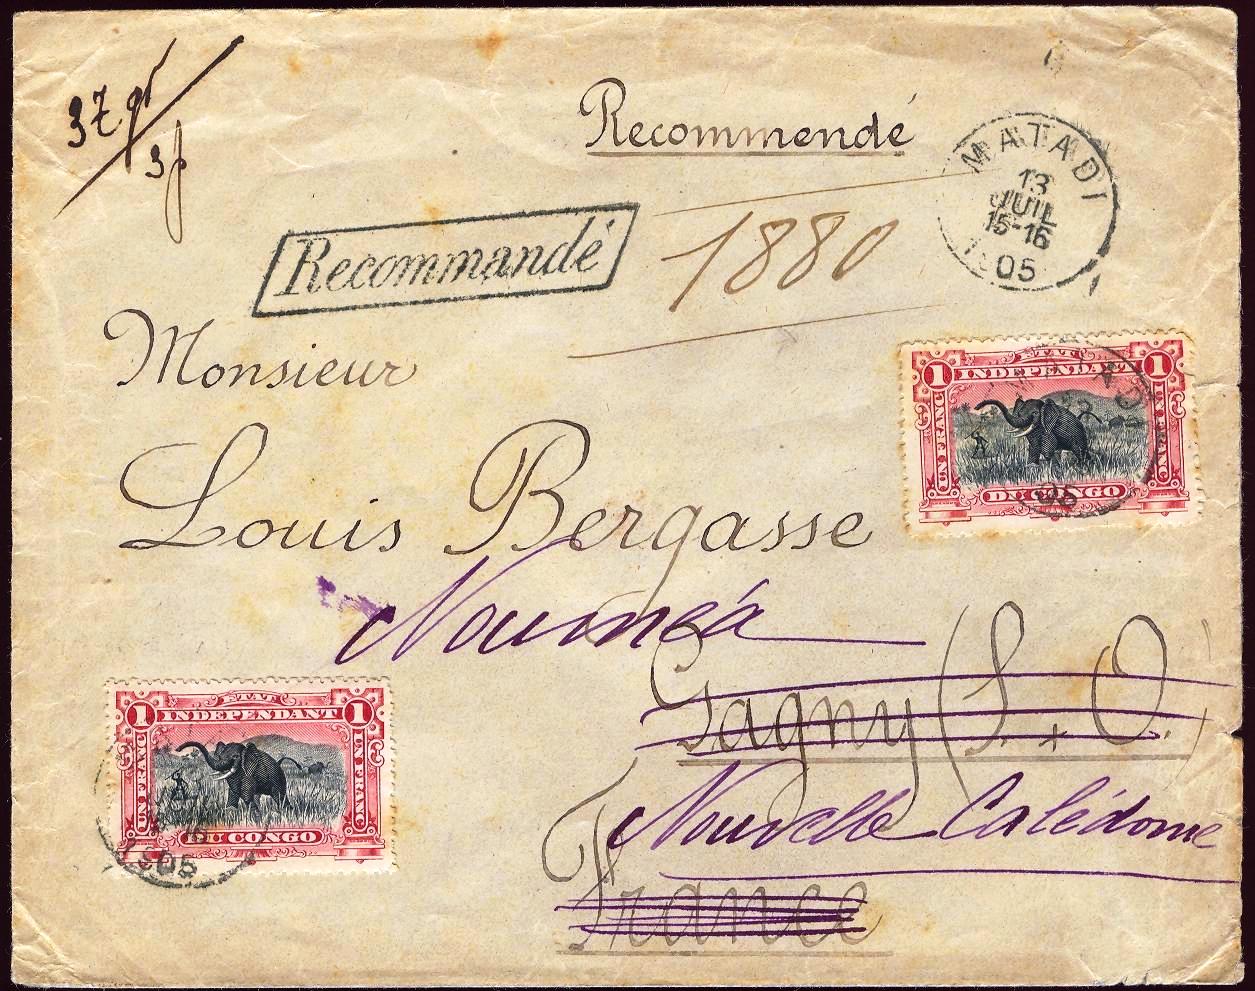 37 gr
3 p
Recommendé
MATADI
13
JUIL
15-16
1905
Recommandé
1880
Monsieur
Louis Bergasse
1 ÉTAT 1
INDEPENDANT
UN FRANC UN FRANC
DU CONGO
05
Nouméa
Gagny (S. & O.)
1 ÉTAT 1
INDEPENDANT
UN FRANC UN FRANC
DU CONGO
1905
Nouvelle Calédonie
France